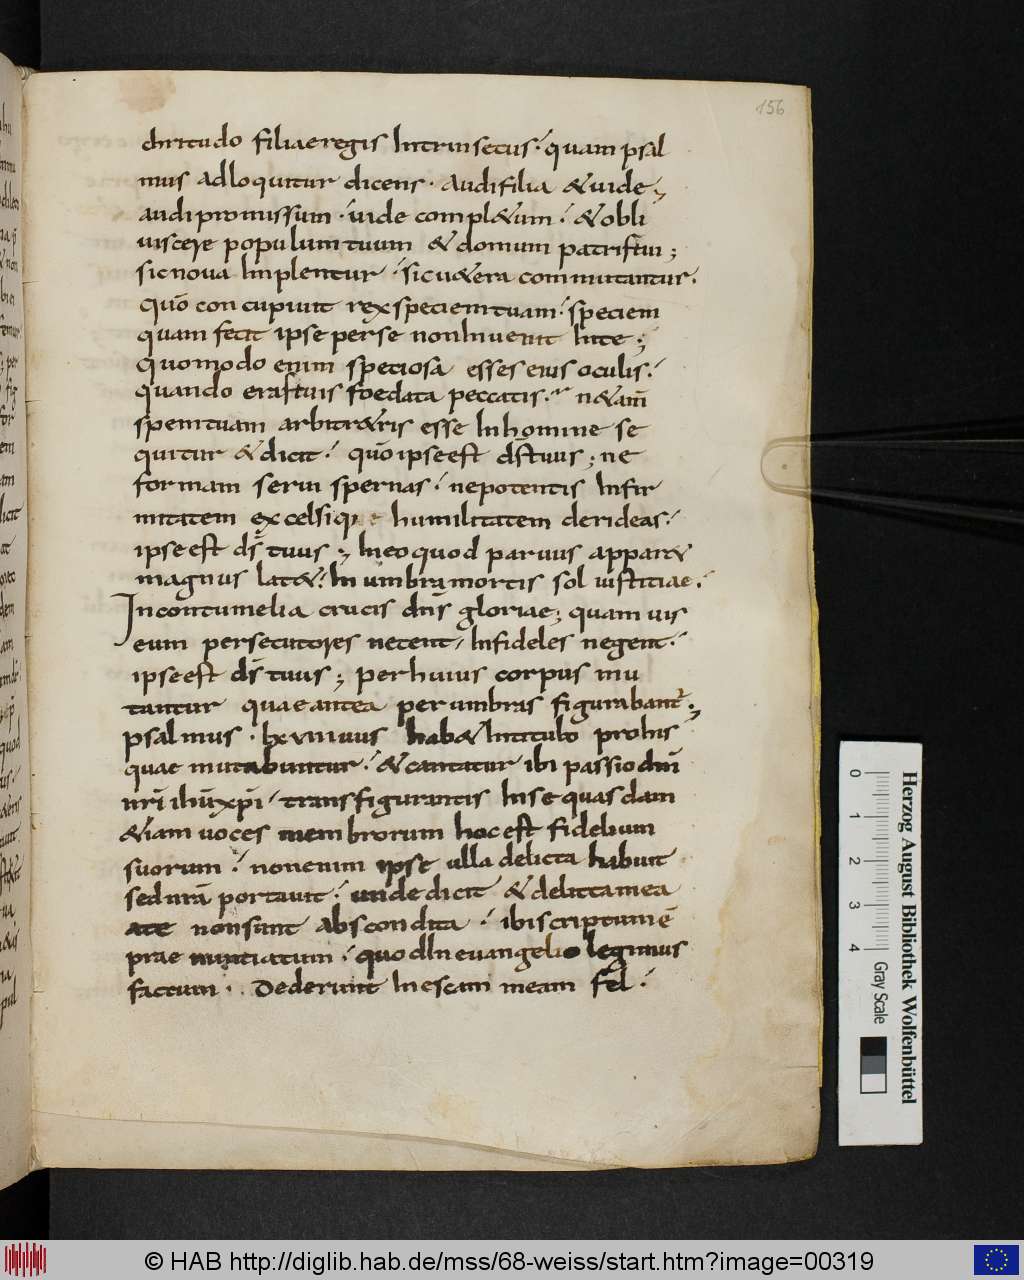 156
chritudo filiae regis Intrinsecus· quam psal
mus adloquitur dicens· audi filia &uide;
audi promissum· uide compl&um· & obli
uiscere populum tuum & domum patris tui;
sic noua Implentur· sic u&era commutantur·
quō concupiuit rex speciem tuam· speciem
quam fecit ipse per se non Inuenit Inte;
quomodo enim speciosa esses eius oculis·
quando eras tuis foedata peccatis· n&am̄
spem tuam arbitr&ris esse Inhomine se
quitur &dicit· quō ipse est d̄s tuus; ne
formam serui spernas· ne potentis Infir
mitatem excelsique humilitatem derideas·
ipse est d̄s tuus; Ineo quod paruus appar&
magnus lat&· In umbra mortis sol iustitiae·
Incontumelia crucis dn̄s gloriae; quam uis
eum persecutores necent, Infideles negent·
ipse est d̄s tuus; per huius corpus mu
tantur quae antea per umbras figurabant̄;
psalmus· lxviiiuus hab& Intitulo prohis
quae mutabuntur· &cantatur ibi passio dn̄i
nr̄i ihū xp̄i, transfigurantis Inse quasdam
&iam uoces membrorum hoc est fidelium
suorum· non enim ipse ulla delicta habuit
sed nrā portauit· unde dicit & delicta mea
a te non sunt abscondita· ibi scriptum ē
praenuntiatum· quod In euangelio legimus
factum· Dederunt Inescam meam fel·
0 1 2 3 4
Gray Scale
Herzog August Bibliothek Wolfenbüttel
© HAB http://diglib.hab.de/mss/68-weiss/start.htm?image=00319